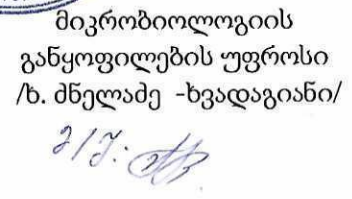 მიკრობიოლოგიის
განყოფილების უფროსი
/ხ. ძნელაძე -ხვადაგიანი/